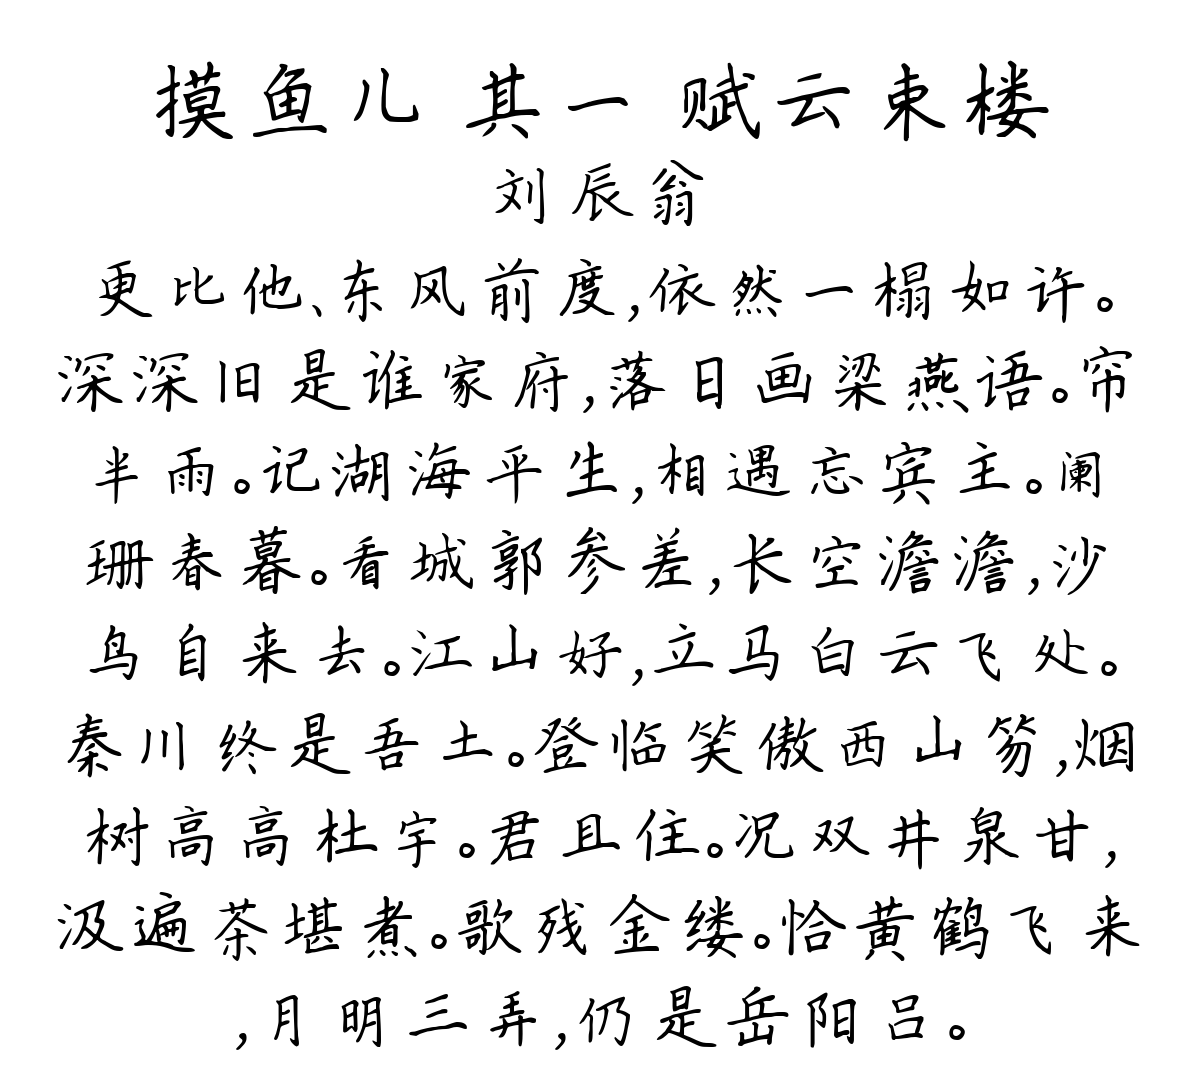 摸鱼儿 其一 赋云束楼
刘辰翁
更比他、东风前度,依然一榻如许。
深深旧是谁家府,落日画梁燕语。帘
半雨。记湖海平生,相遇忘宾主。阑
珊春暮。看城郭参差,长空澹澹,沙
鸟自来去。江山好,立马白云飞处。
秦川终是吾土。登临笑傲西山笏,烟
树高高杜宇。君且住。况双井泉甘,
汲遍茶堪煮。歌残金缕。恰黄鹤飞来
,月明三弄,仍是岳阳吕。